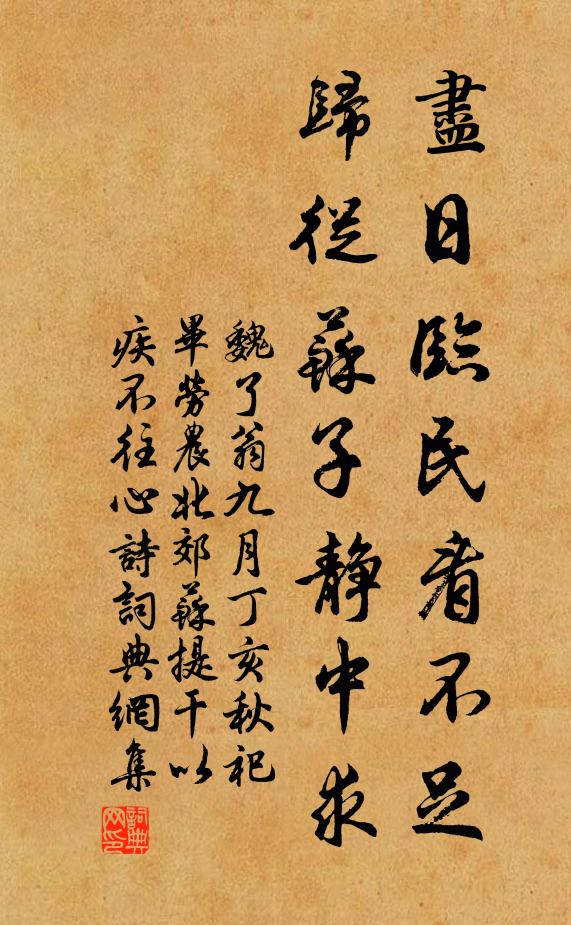 盡日臨民看不足
歸從蘇子靜中求
魏了翁九月丁亥秋祀
畢勞農北郊蘇提干以
疾不往心詩詞典網集
詞典網印